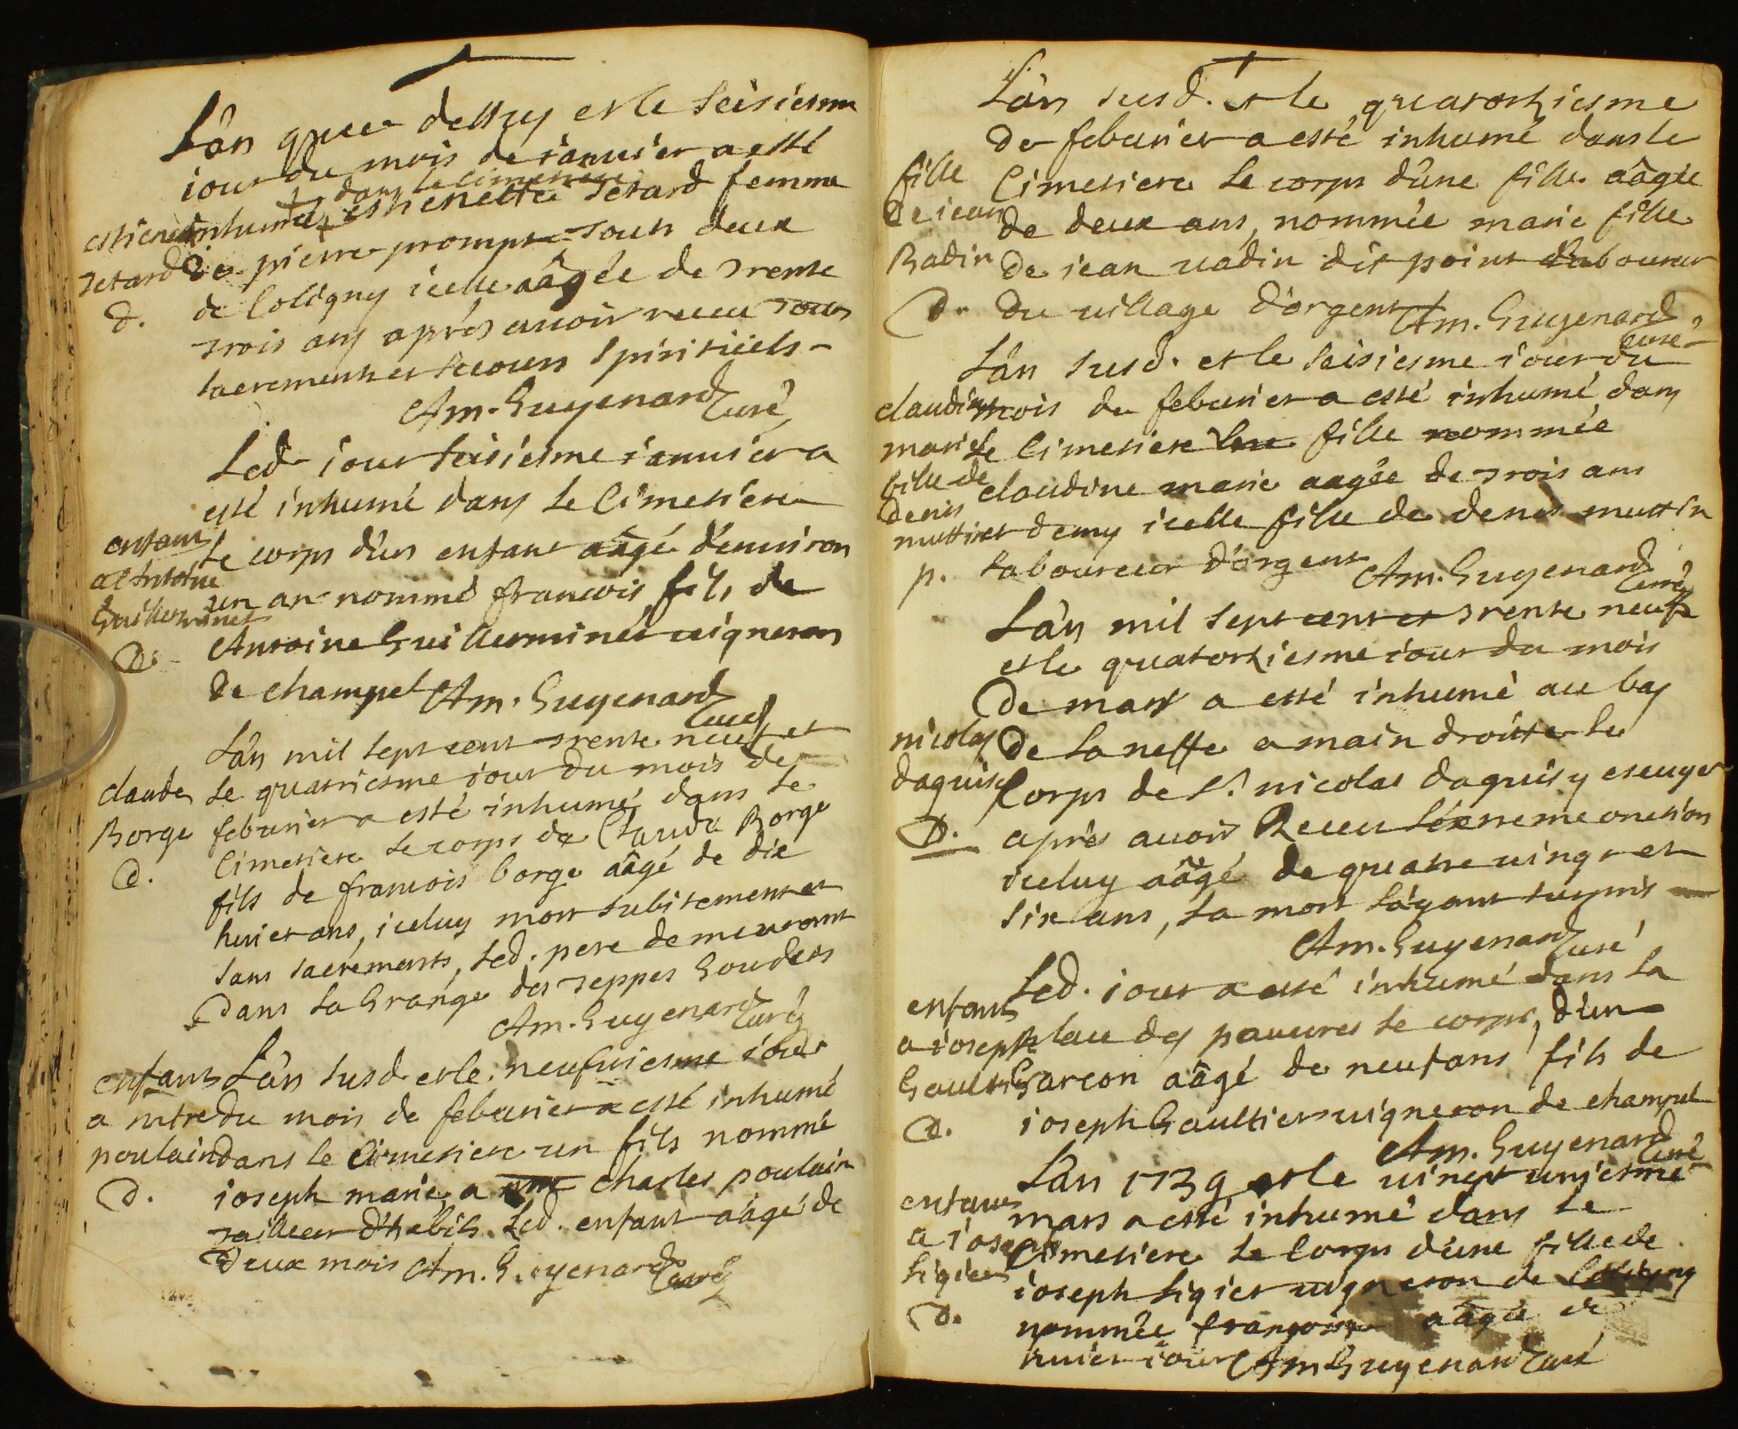 L'ân que dessuy et le seisiesme
iour du mois de ianuier a esté
dans le cimetiere
estienette inhumé + estienette Jetard femme
Jetard de pierre prompt tous deux
d. de Coligny icelle aâgée de trente
trois ans aprés auoir receu tous
sacrements et secours spirituels -
Am. Guyenard Curé
Led. iour seisiesme ianuier a
esté inhumé dans le Cimetiere
enfant le corps d'un enfant aâgé d'enuiron
a Antoine un an nommé francois fils de
Guillerminet
D. Antoine Guillerminet uigneron
de champel Am. Guyenard
Curé
L'ân mil sept cent trente neuf et
claude le quatriesme iour du mois de
Borge feburier a esté inhumé dans le
d. Cimetiere le corps de Claude Borge
fils de francois borge aâgé de dix
huict ans, iceluy mort subitement et
sans sacrements, led. pere demeurant
dans la Grange des teppes Gouders
Am. Guyenard Curé
enfant L'ân susd. et le neufuiesme iour
a mtre du mois de feburier a esté inhumé
poulain dans le Cimetiere un fils nommé
d. ioseph marie a Charles poulain
tailleur d'habits. Led. enfant aâgé de
Deux mois Am. Guyenard Curé
L'ân susd. et le quatorziesme
de feburier a esté inhumé dans le
fille Cimetiere le corps d'une fille aâgée
De iean de deux ans, nommée marie fille
Radin de iean radin dit point laboureur
D. du uillage d'orgent Am. Guyenard
Curé
L'ân susd. et le seisiesme iour du
claudine mois de feburier a esté inhumé dans
marie le Cimetiere une fille nommée
fille de claudine marie aagée de trois ans
denis
muttin et demy icelle fille de denis muttin
p. laboureur d'orgent Am. Guyenard
Curé
L'ân mil sept cent et trente neuf
et le quatorziesme iour du mois
De mars a esté inhumé au bas
nicolas De la neffe a main droitte le
daquisy Corps de Sr. nicolas daquisy escuyer
D. aprés auoir Receu l'éxtreme onction
iceluy aâgé de quatre uingt et
six ans, la mort l'ayant surpris
Am. Guyenard Curé
Led. iour a esté inhumé dans la
enfant
a ioseph place des pauures le corps, d'un
Gaultier Garcon aâgé de neuf ans fils de
d. ioseph Gaultier uigneron de champel
Am. Guyenard
Curé
L'ân 1739 et le uingt uniesme
enfant mars a esté inhumé dans le
a ioseph Cimetiere le Corps d'une fille de
ligier ioseph ligier uigneron de Coligny
D. nommée francoise aâgée de
huict iours Am Guyenard Curé